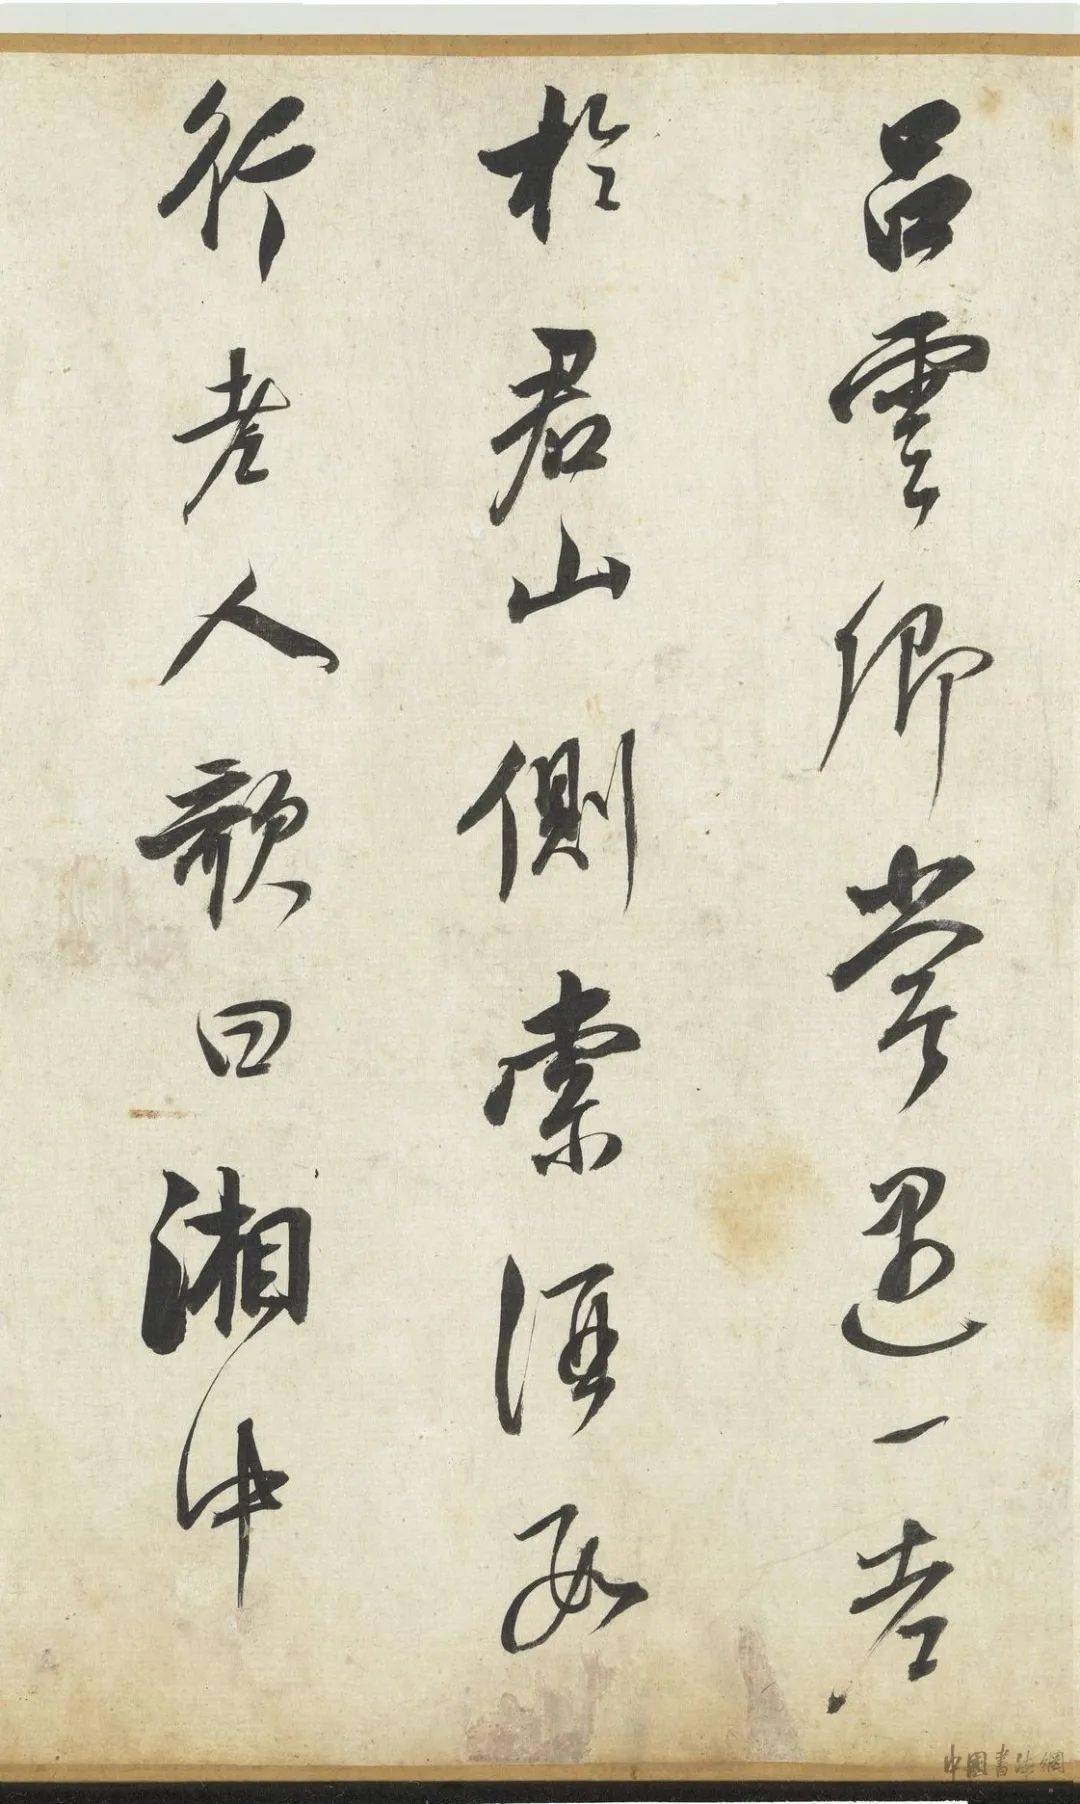 呂雲卿常遇一老
於君山側索酒數
行老人歌曰湘中
中國書法網